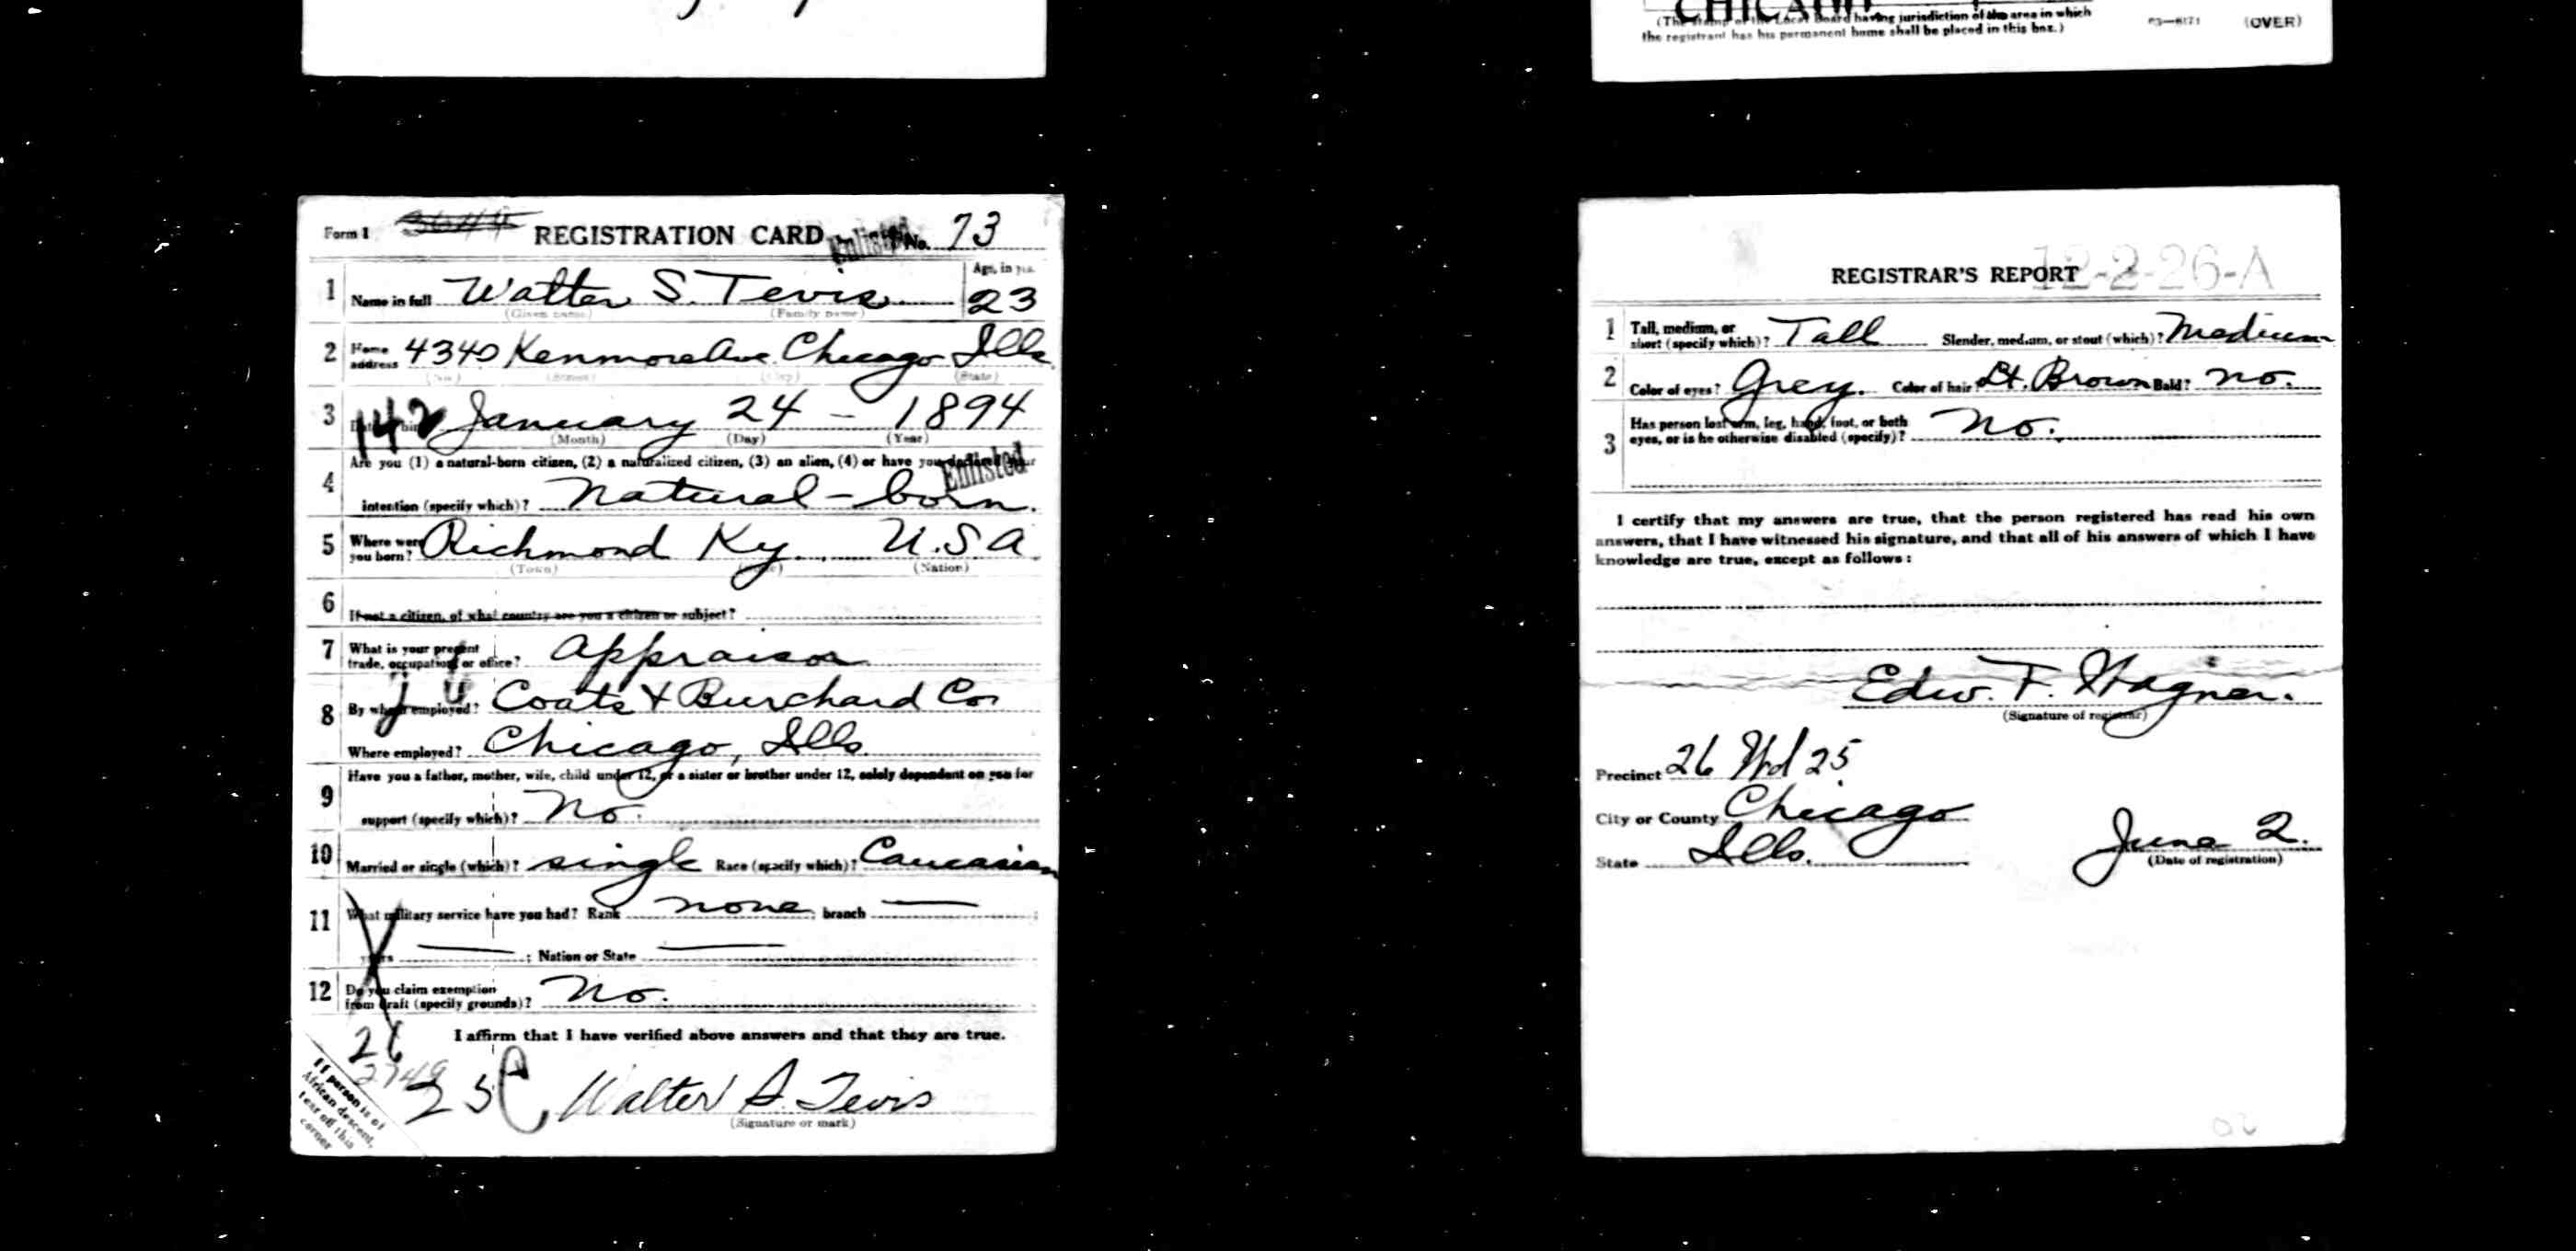 CHICAGO
(The stamp of the Local Board having jurisdiction of the area in which
the registrant has his permanent home shall be placed in this box.)
(OVER)
Form 1 REGISTRATION CARD Enlisted No. 73
1 Name in full Walter S. Tevis Age, in yrs. 23
(Given name) (Family name)
2 Home address 4340 Kenmore Ave. Chicago Ills.
(No.) (Street) (City) (State)
3 Date of birth January 24 - 1894
142
(Month) (Day) (Year)
4 Are you (1) a natural-born citizen, (2) a naturalized citizen, (3) an alien, (4) or have you declared your
Enlisted
intention (specify which)? natural-born.
5 Where were you born? Richmond Ky. U.S.A.
(Town) (State) (Nation)
6 If not a citizen, of what country are you a citizen or subject?
7 What is your present trade, occupation, or office? Appraiser
8 By whom employed? Coats & Burchard Co.
Where employed? Chicago, Ills.
9 Have you a father, mother, wife, child under 12, or a sister or brother under 12, solely dependent on you for
support (specify which)? No.
10 Married or single (which)? single Race (specify which)? Caucasian
11 What military service have you had? Rank none; branch —;
years —; Nation or State —
12 Do you claim exemption from draft (specify grounds)? No.
I affirm that I have verified above answers and that they are true.
26
25 C Walter S. Tevis
(Signature or mark)
If person is of
African descent,
tear off this
corner
REGISTRAR'S REPORT 12-2-26-A
1 Tall, medium, or short (specify which)? Tall Slender, medium, or stout (which)? Medium
2 Color of eyes? Grey. Color of hair? Lt. Brown Bald? No.
3 Has person lost arm, leg, hand, foot, or both eyes, or is he otherwise disabled (specify)? No.
I certify that my answers are true, that the person registered has read his own
answers, that I have witnessed his signature, and that all of his answers of which I have
knowledge are true, except as follows:
Edw. F. Wagner.
(Signature of registrar)
Precinct 26 Wd 25
City or County Chicago
State Ills. June 2.
(Date of registration)